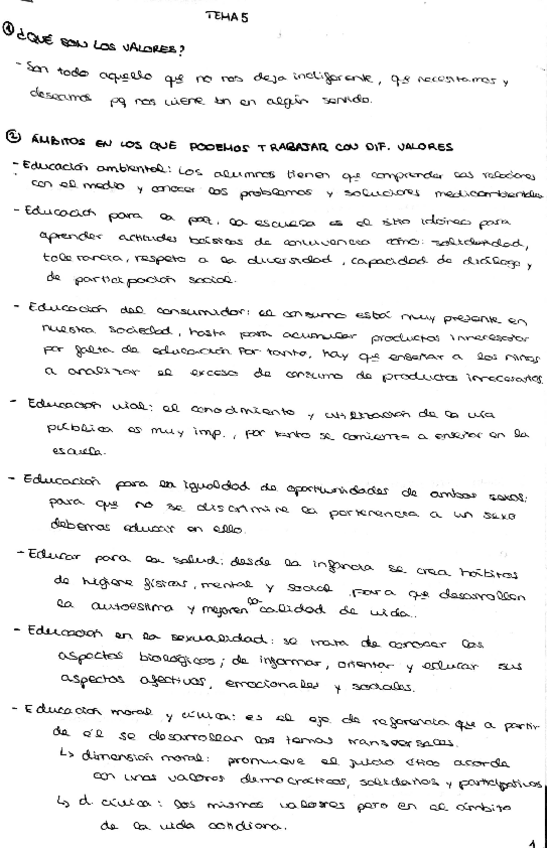 TEMA 5
① ¿QUÉ SON LOS VALORES?
- Son todo aquello que no nos deja indiferente, que necesitamos y
deseamos pq nos viene bn en algún sentido.
② ÁMBITOS EN LOS QUE PODEMOS TRABAJAR CON DIF. VALORES
- Educación ambiental: Los alumnos tienen que comprender las relaciones
con el medio y conocer los problemas y soluciones medioambientales
- Educación para la paz, la escuela es el sitio idóneo para
aprender actitudes básicas de convivencia como: solidaridad,
tolerancia, respeto a la diversidad, capacidad de diálogo y
de participación social.
- Educación del consumidor: el consumo está muy presente en
nuestra sociedad, hasta para acumular productos innecesarios
por falta de educación. Por tanto, hay que enseñar a los niños
a analizar el exceso de consumo de productos innecesarios.
- Educación vial: el conocimiento y utilización de la vía
pública es muy imp., por tanto se comienza a enseñar en la
escuela.
- Educación para la igualdad de oportunidades de ambos sexos:
para que no se discrimine la pertenencia a un sexo
debemos educar en ello.
- Educar para la salud: desde la infancia se crea hábitos
de higiene físicas, mental y social para que desarrollen
la autoestima y mejoren la calidad de vida.
- Educación en la sexualidad: se trata de conocer los
aspectos biológicos; de informar, orientar y educar sus
aspectos afectivos, emocionales y sociales.
- Educación moral y cívica: es el eje de referencia que a partir
de él se desarrollan los temas transversales.
↳ dimensión moral: promueve el juicio ético acorde
con unos valores democráticos, solidarios y participativos
↳ d. cívica: los mismos valores pero en el ámbito
de la vida cotidiana.
1